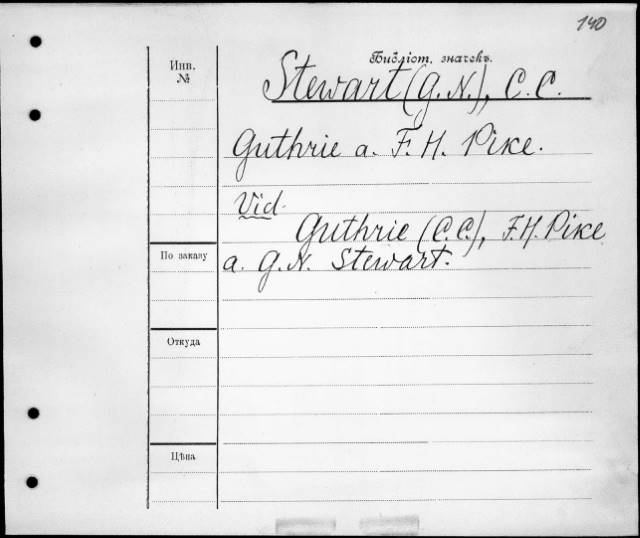 140
Инв.
№
Библіот. значекъ.
Stewart (G. N.), C. C.
Guthrie a. F. H. Pike.
Vid.
Guthrie (C. C.), F. H. Pike
a. G. N. Stewart.
По заказу
Откуда
Цѣна